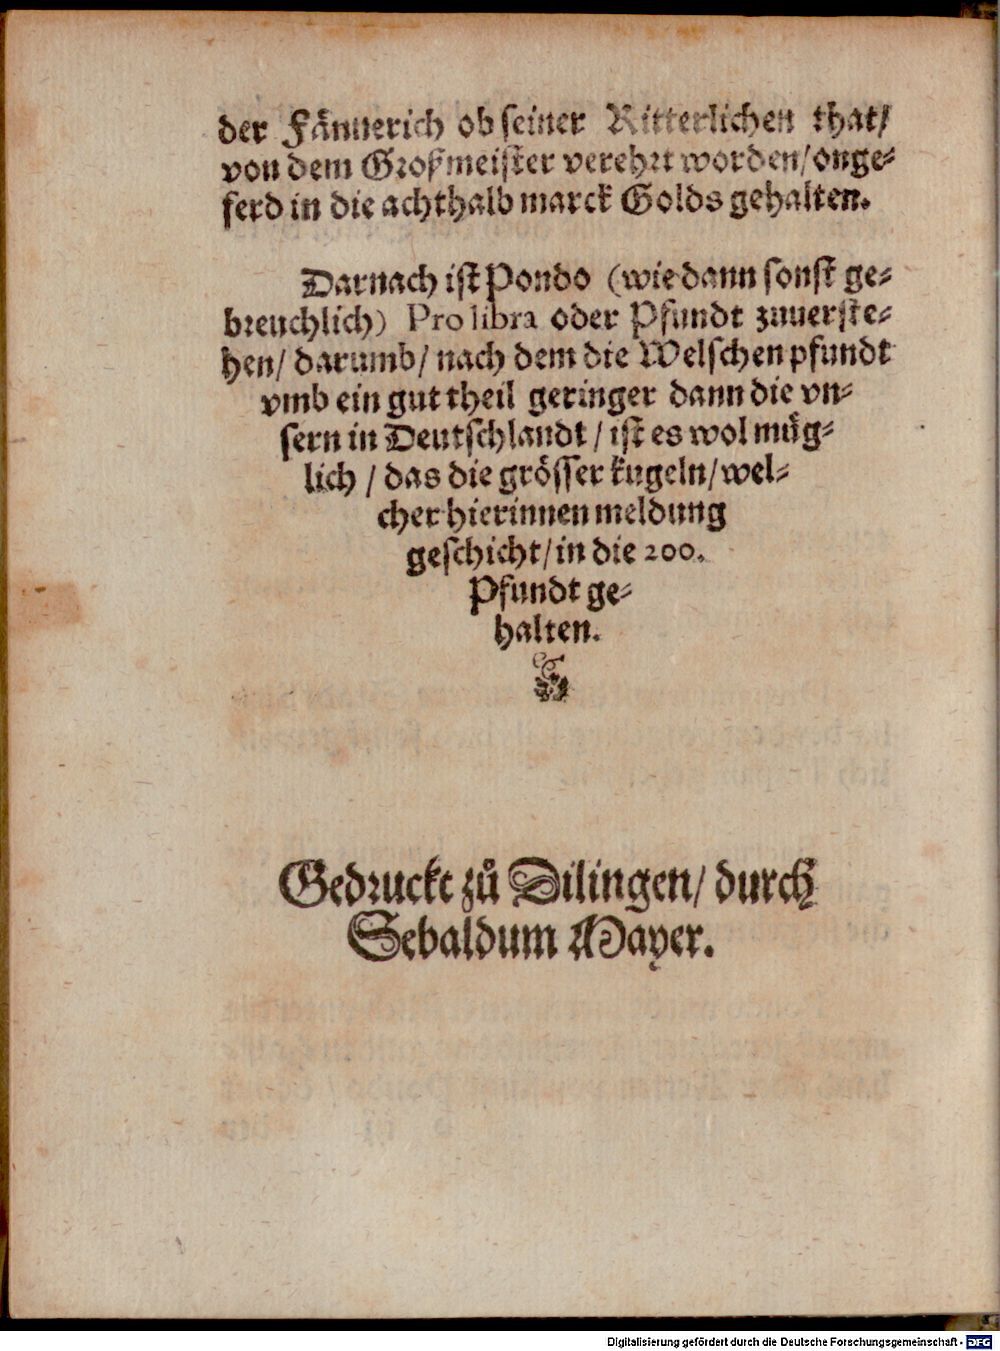 der Fännerich ob seiner Ritterlichen that/
von dem Großmeister verehrt worden/ onge-
ferd in die achthalb marck Golds gehalten.
Darnach ist Pondo (wie dann sonst ge-
breuchlich) Pro libra oder Pfundt zuuerste-
hen/ darumb/ nach dem die Welschen pfundt
vmb ein gut theil geringer dann die vn-
sern in Deutschlandt/ ist es wol müg-
lich/ das die grösser kugeln/ wel-
cher hierinnen meldung
geschicht/ in die 200.
Pfundt ge-
halten.
Gedruckt zů Dilingen/ durch
Sebaldum Mayer.
Digitalisierung gefördert durch die Deutsche Forschungsgemeinschaft - DFG